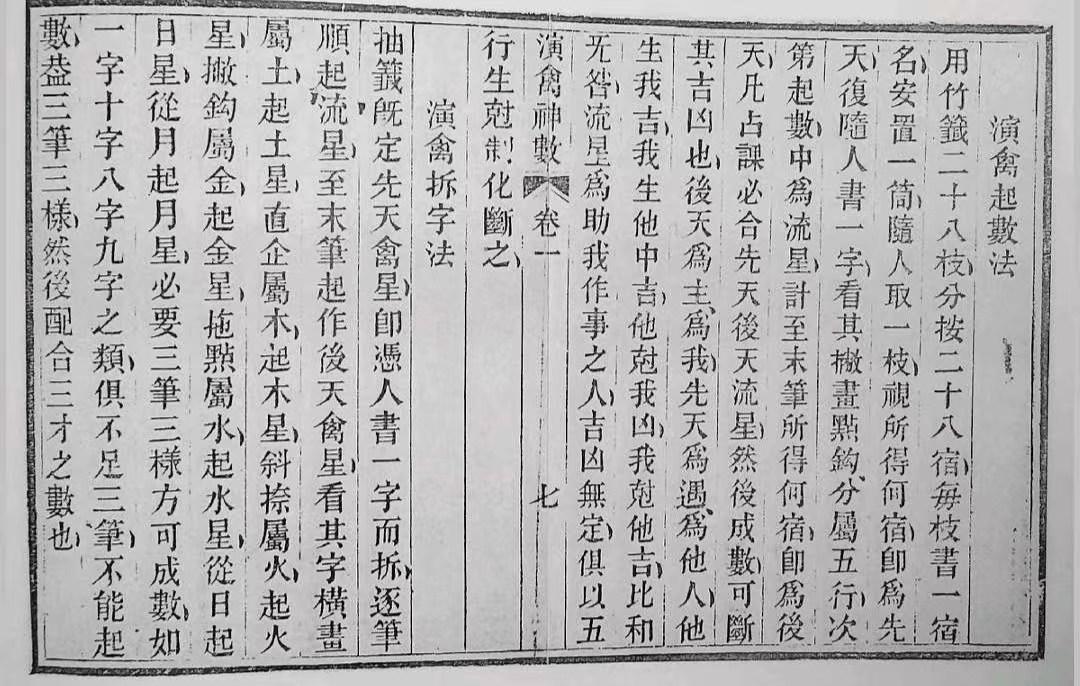 演禽起數法
用竹籤二十八枝分按二十八宿每枝書一宿
名安置一筒隨人取一枝視所得何宿卽為先
天復隨人書一字看其撇畫點鈎分屬五行次
第起數中為流星計至末筆所得何宿卽為後
天凡占課必合先天後天流星然後成數可斷
其吉凶也後天為主為我先天為遇為他人他
生我吉我生他中吉他尅我凶我尅他吉比和
无咎流星為助我作事之人吉凶無定俱以五
演禽神數 卷一 七
行生尅制化斷之
演禽拆字法
抽籤既定先天禽星卽憑人書一字而拆逐筆
順起流星至末筆起作後天禽星看其字橫畫
屬土起土星直企屬木起木星斜捺屬火起火
星撇鈎屬金起金星拖點屬水起水星從日起
日星從月起月星必要三筆三樣方可成數如
一字十字八字九字之類俱不足三筆不能起
數葢三筆三樣然後配合三才之數也